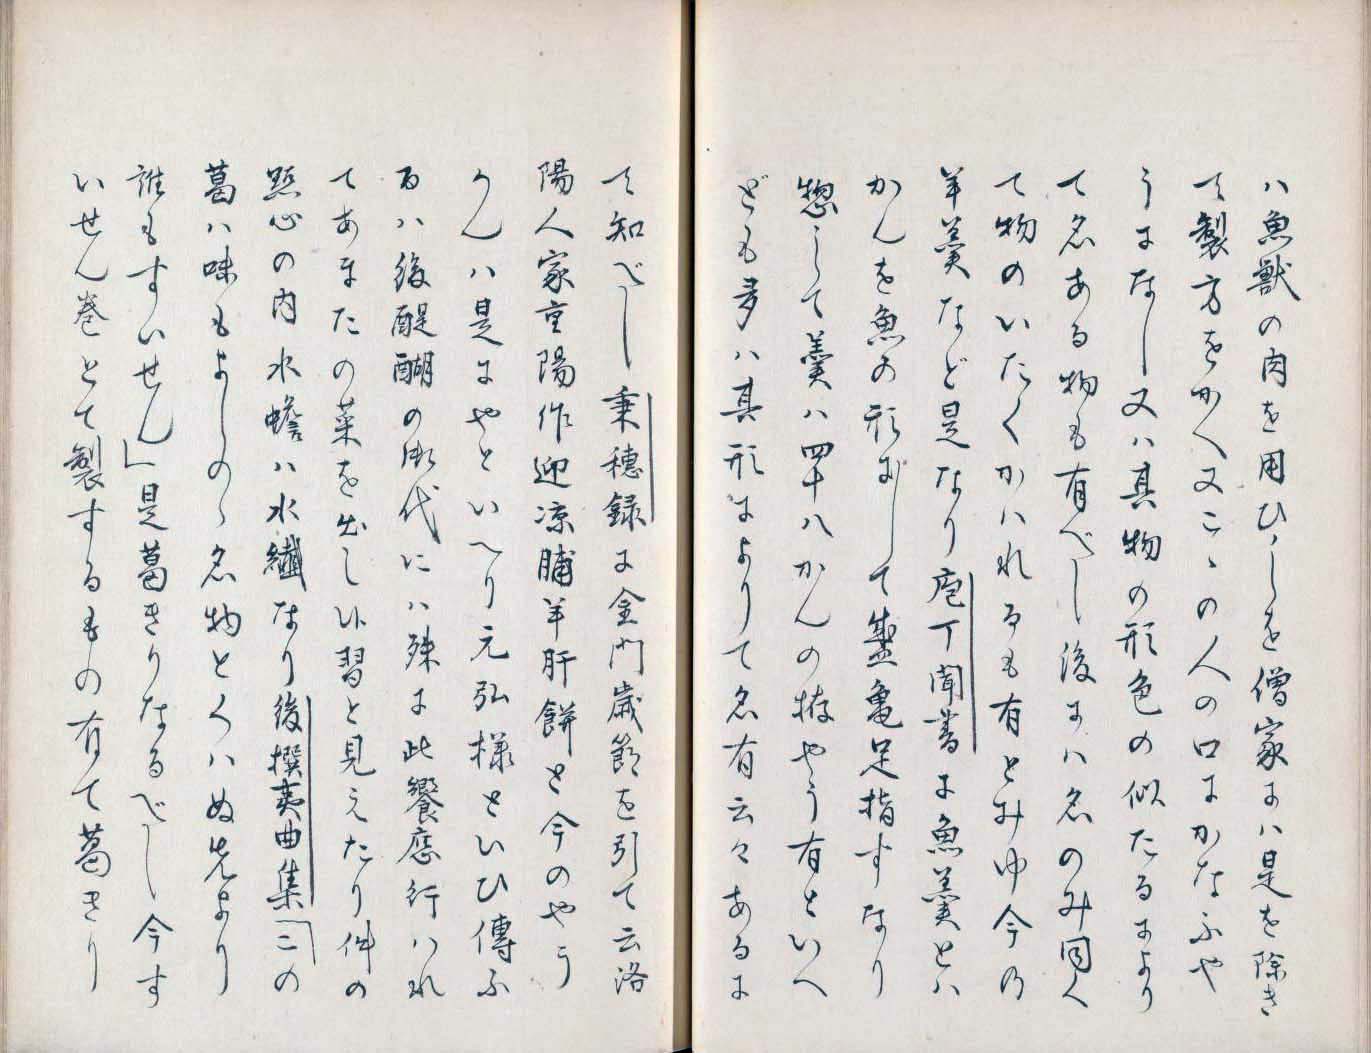 ハ魚獣の肉を用ひしを僧家にハ是を除き
て製方をかへ又こゝの人の口にかなふや
うになし又ハ其物の形色の似たるより
て名ある物も有べし後にハ名のみ同く
て物のいたくかハれるも有とみゆ今の
羊羹など是なり庖丁聞書に魚羹とハ
かんを魚の形にして盛亀足指すなり
惣して羹ハ四十八かんの拵やう有といへ
ども多ハ其形によりて名有云々あるに
て知べし秉穂録に金門歳節を引て云洛
陽人家重陽作迎凉脯羊肝餅と今のやう
かんハ是にやといへり元弘様といひ傳ふ
るハ後醍醐の御代にハ殊に此饗應行ハれ
てあまたの菜を出し候習と見えたり件の
點心の内水蟾ハ水纎なり後撰夷曲集「この
葛ハ味もよしのゝ名物とくハぬ先より
誰もすいせん」是葛きりなるべし今す
いせん巻とて製するもの有て葛きり